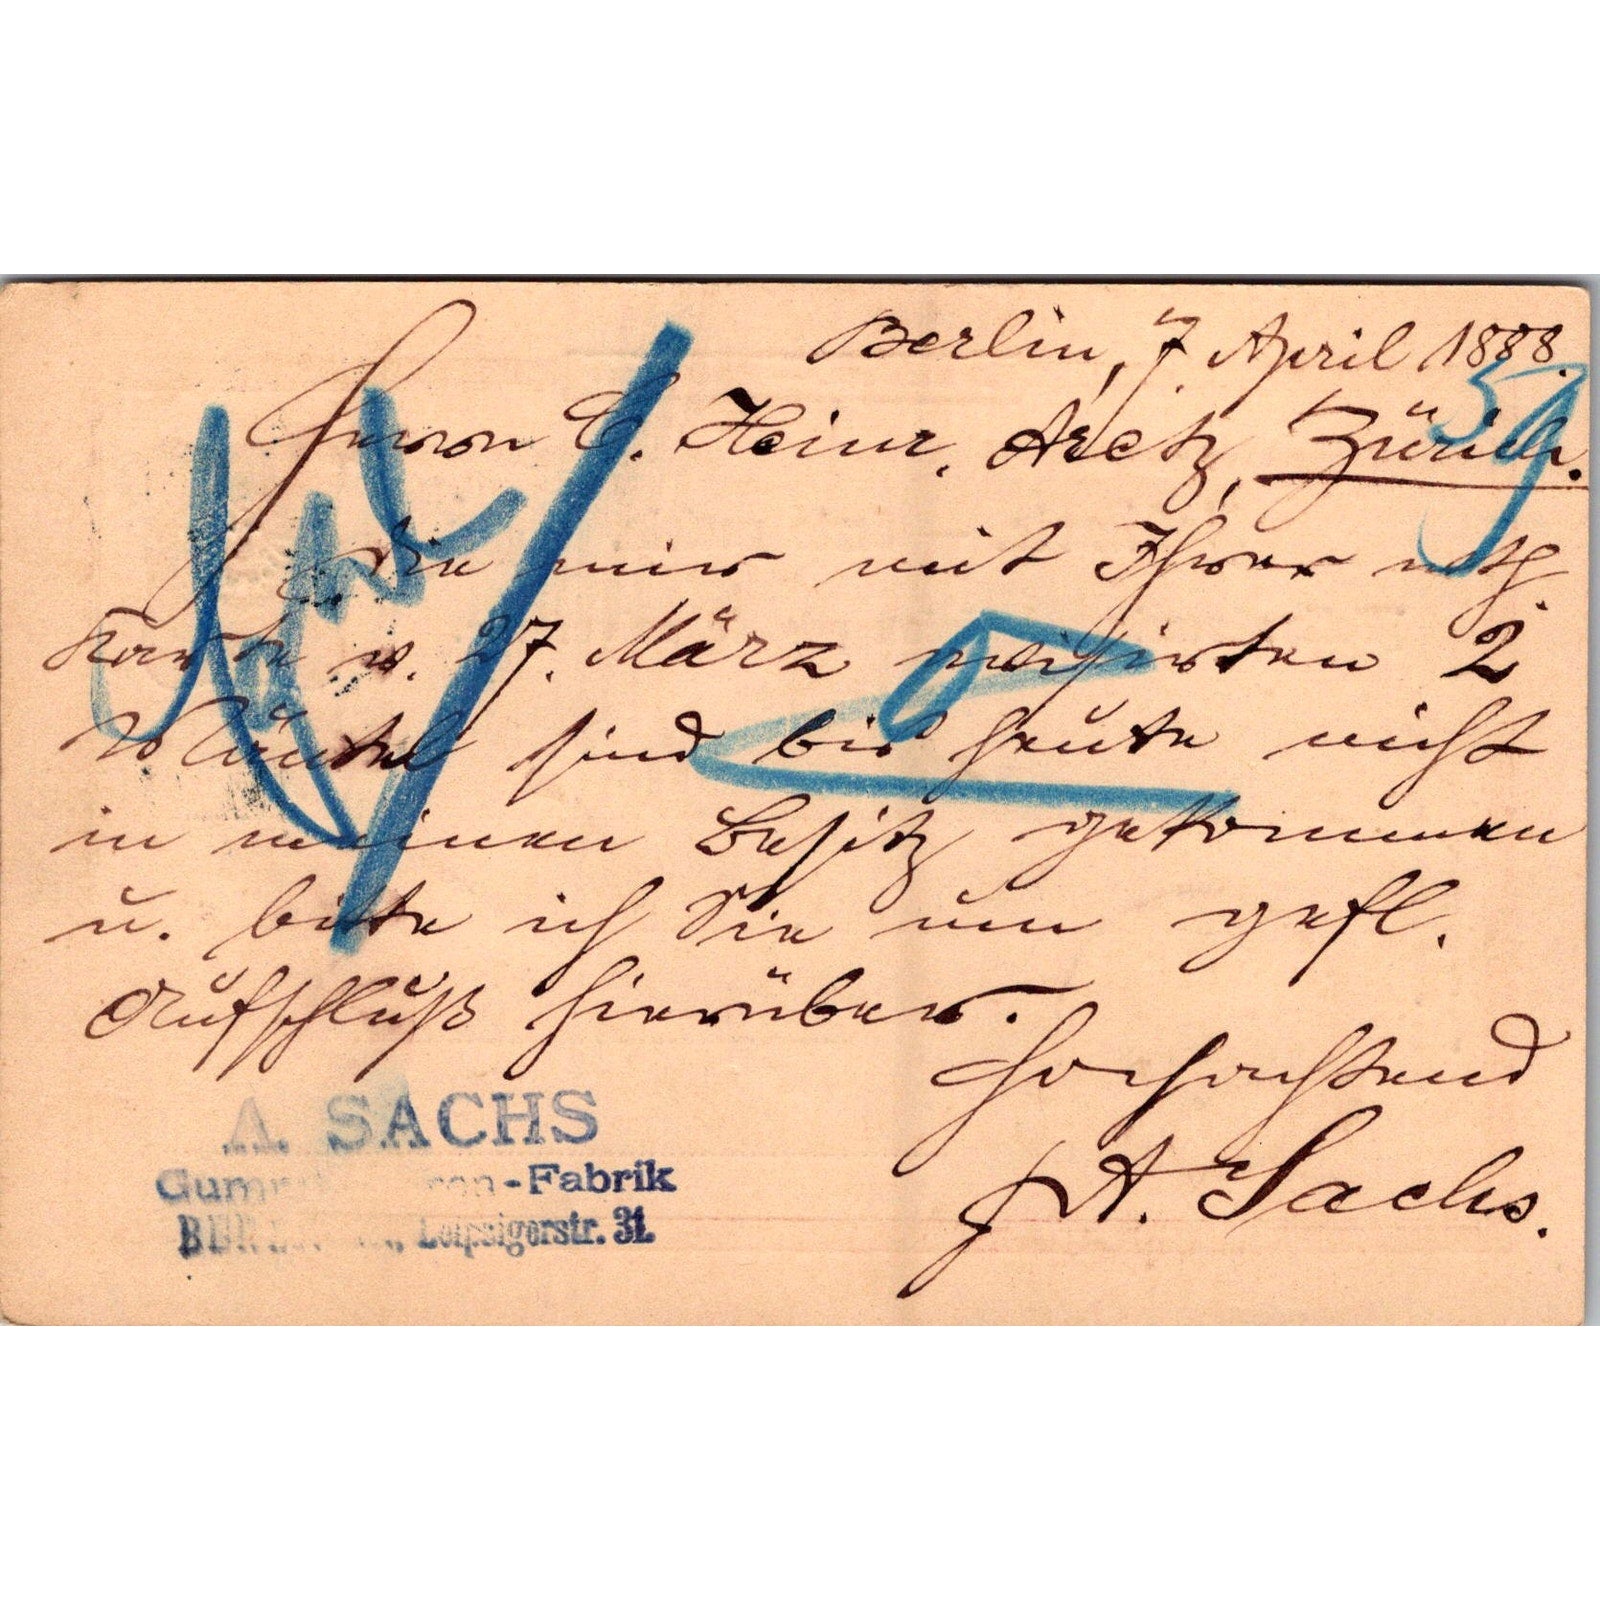 Berlin, 7. April 1888.
Herrn C. Heinr. Aretz, Zürich.
Die mir mit Ihrer
Karte v. 27. März avisirten 2
Mäntel sind bis heute nicht
in meinen Besitz gekommen
u. bitte ich Sie um gefl.
Aufschluß hierüber.
Hochachtend
A. Sachs.
A. SACHS
-Fabrik
Leipzigerstr. 31.